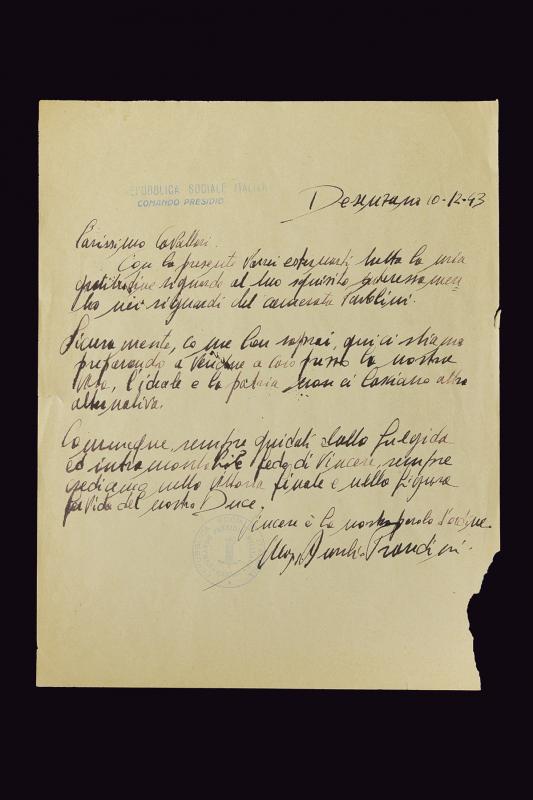 REPUBBLICA SOCIALE ITALIANA
COMANDO PRESIDIO
Desenzano 10-12-43
Carissimo Cavallari.
Con la presente vorrei esternarti tutta la mia
gratitudine riguardo al tuo squisito interessamen=
to nei riguardi del camerata
Sicuramente, come ben saprai, qui ci stiamo
preparando a vendere a caro prezzo la nostra
vita, l'ideale e la patria non ci lasciano altra
alternativa.
Comunque, sempre guidati dalla fulgida
ed intramontabile fede di vincere, sempre
crediamo nella vittoria finale e nella figura
del nostro Duce.
Vincere è la nostra parola d'ordine.
Magg.